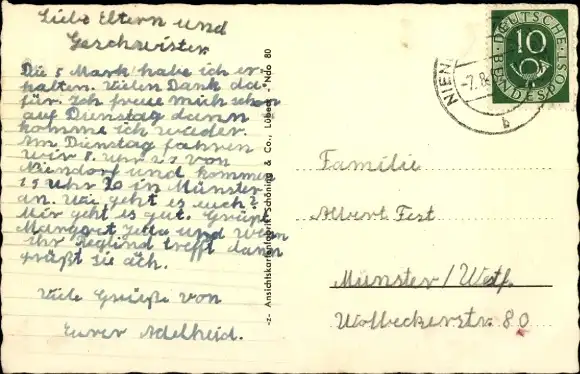 Liebe Eltern und
Geschwister
Die 5 Mark habe ich er-
halten. Vielen Dank da-
für. Ich freue mich schon
auf Dienstag dann
komme ich wieder.
Am Dienstag fahren
wir 8. Uhr 27 von
Niendorf und kommen
15 Uhr 20 in Münster
an. Wie geht es euch?
Mir geht es gut. Grüßt
Margret und wenn
ihr trefft dann
grüßt sie ach.
Viele Grüße von
Eurer Adelheid.
-z- Ansichtskartenfabrik Schöning & Co., Lübeck Ndo 80
DEUTSCHE BUNDESPOST
10
NIEN
-7.8
b
Familie
Albert Fest
Münster/Westf.
Wolbeckerstr. 80